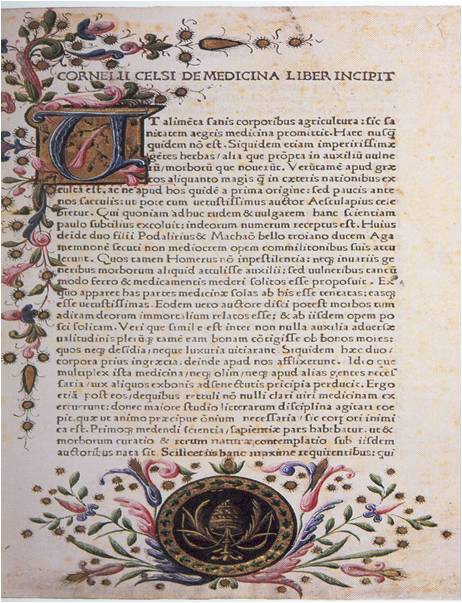 CORNELII CELSI DE MEDICINA LIBER INCIPIT
UT alimēta sanis corporibus agricultura: sic sa
nitatem aegris medicina promittit. Haec nusq̄
quidem nō est. Siquidem etiam imperitissimæ
gētes herbas/ alia que prōpta in auxiliū uulne
rū/ morborū que nouerūt. Verūtamē apud græ
cos aliquanto magis q̄ in cæteris nationibus ex
culta est, ac ne apud hos quidē a prima origine: sed paucis ante
nos sæculis: ut pote cum uetustissimus auctor Aesculapius cele
bretur. Qui quoniam adhuc rudem & uulgarem hanc scientiam
paulo subtilius excoluit: indeorum numerum receptus est. Huius
deīde duo filii Podalirius & Machaō bello troiano ducem Aga
memnonē secuti non mediocrem opem commilitonibus suis attu
lerunt. Quos tamen Homerus nō inpestilentia: neq; inuariis ge
neribus morborum aliquid attulisse auxilii: sed uulneribus tantū
modo ferro & medicamentis mederi solitos esse proposuit. Ex
quo apparet has partes medicinæ solas ab his esse tentatas: easq;
esse uetustissimas. Eodem uero auctore disci potest morbos tum
ad iram deorum immortalium relatos esse: & ab iisdem opem po
sci solitam. Veri que simile est inter non nulla auxilia aduersæ
ualitudinis plerūq; tamē eam bonam cōtigisse ob bonos mores:
quos neq; desidia: neque luxuria uitiarant. Siquidem hæc duo
corpora prius ingræcia: deinde apud nos afflixerunt. Ideo que
multiplex ista medicina/ neq; olim/ neq; apud alias gentes neces
saria/ uix aliquos ex bonis ad senectutis pricipia perducit. Ergo
etiā post eos, dequibus rettuli nō nulli clari uiri medicinam ex
ercuerunt: donec maiore studio litterarum disciplina agitari coe
pit. quæ ut animo præcipue ōnium necessaria/ sic corpori inimi
ca est. Primoq; medendi scientia/ sapientiæ pars habebatur. ut &
morborum curatio & rerum naturæ contemplatio sub iisdem
auctoribus nata sit. Scilicet iis hanc maxime requirentibus: qui